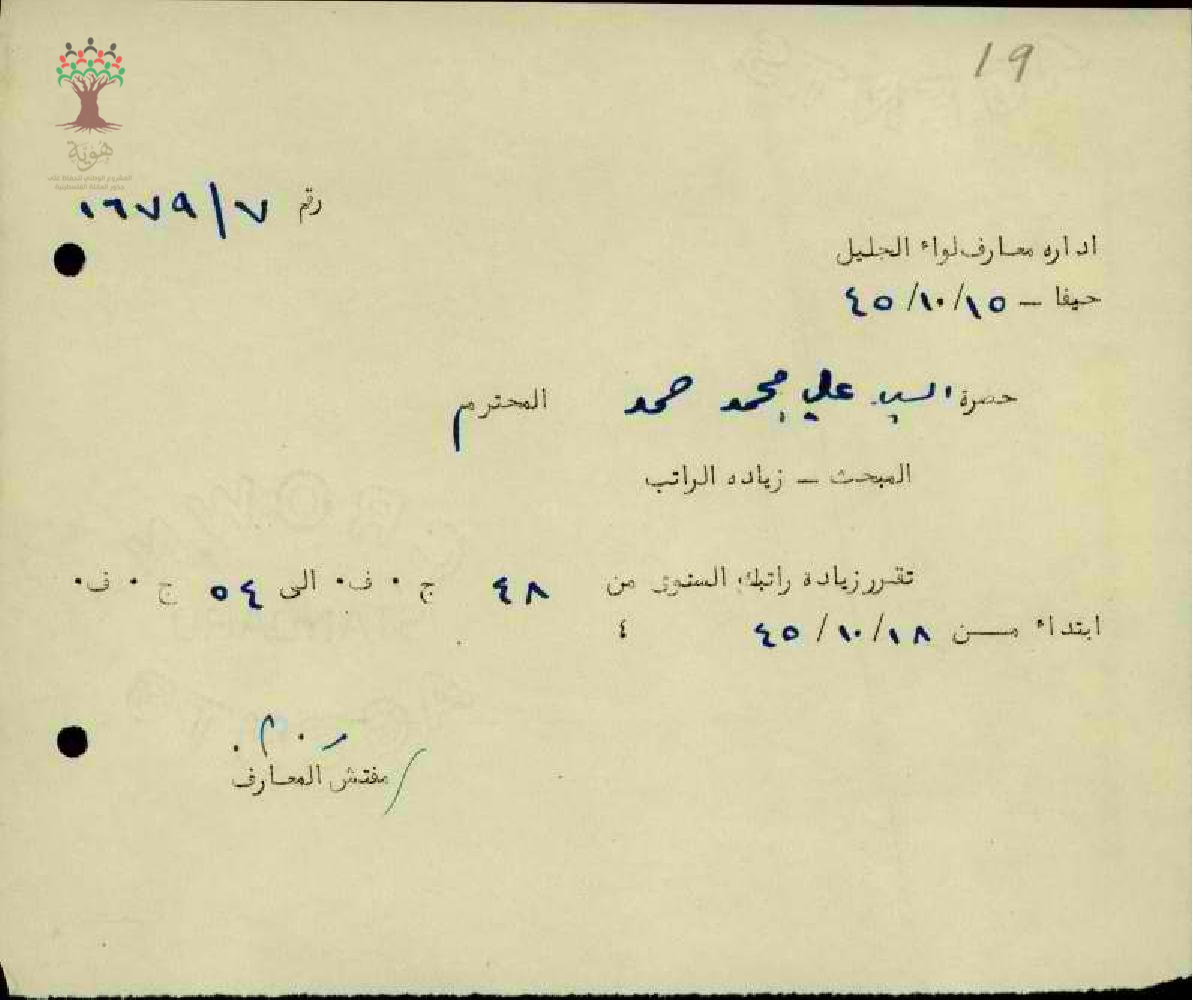 19
هوية
المشروع الوطني للحفاظ على
جذور العائلة الفلسطينية
رقم ٧/١٦٧٩
اداره معارف لواء الجليل
حيفا — ٤٥/١٠/١٥
حضرة السيد علي محمد حمد المحترم
المبحث — زياده الراتب
تقرر زيادة راتبك السنوى من ٤٨ ج ٠ ف٠ الى ٥٤ ج ٠ ف٠
ابتداء من ٤٥/١٠/١٨ ٤
مفتش المعارف